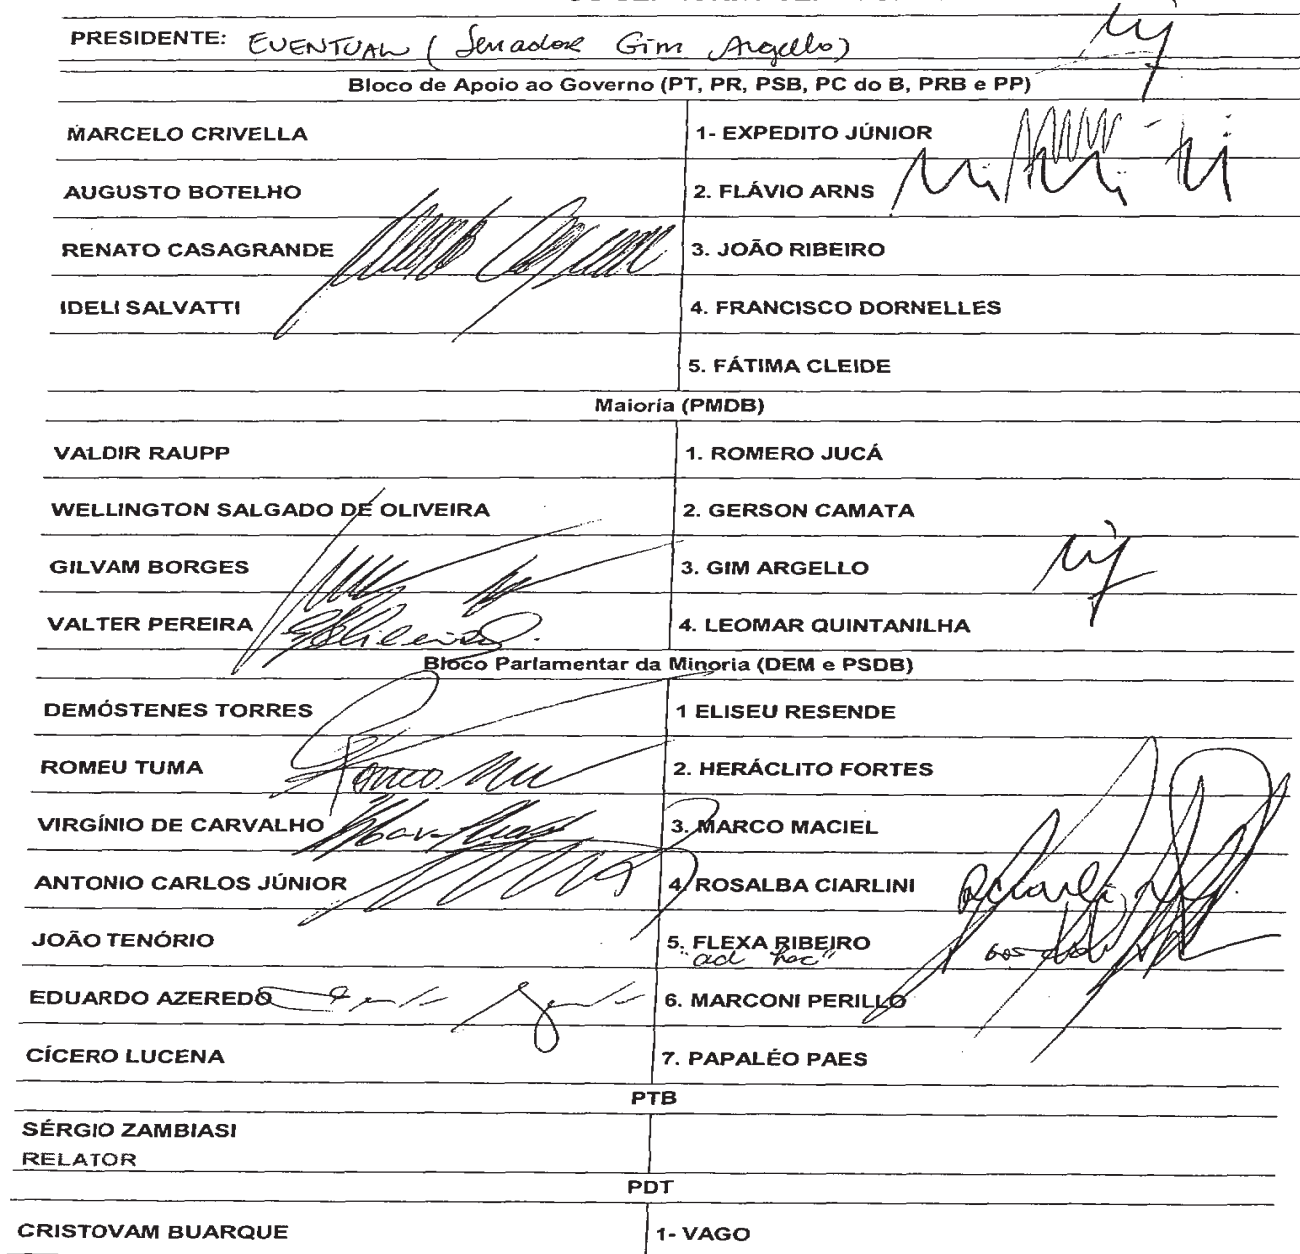 PRESIDENTE: EVENTUAL (Senador Gim Argello)
Bloco de Apoio ao Governo (PT, PR, PSB, PC do B, PRB e PP)
MARCELO CRIVELLA 1- EXPEDITO JÚNIOR
AUGUSTO BOTELHO 2. FLÁVIO ARNS
RENATO CASAGRANDE 3. JOÃO RIBEIRO
IDELI SALVATTI 4. FRANCISCO DORNELLES
5. FÁTIMA CLEIDE
Maioria (PMDB)
VALDIR RAUPP 1. ROMERO JUCÁ
WELLINGTON SALGADO DE OLIVEIRA 2. GERSON CAMATA
GILVAM BORGES 3. GIM ARGELLO
VALTER PEREIRA 4. LEOMAR QUINTANILHA
Bloco Parlamentar da Minoria (DEM e PSDB)
DEMÓSTENES TORRES 1 ELISEU RESENDE
ROMEU TUMA 2. HERÁCLITO FORTES
VIRGÍNIO DE CARVALHO 3. MARCO MACIEL
ANTONIO CARLOS JÚNIOR 4. ROSALBA CIARLINI
JOÃO TENÓRIO 5. FLEXA RIBEIRO
"ad hoc"
EDUARDO AZEREDO 6. MARCONI PERILLO
CÍCERO LUCENA 7. PAPALÉO PAES
PTB
SÉRGIO ZAMBIASI
RELATOR
PDT
CRISTOVAM BUARQUE 1- VAGO